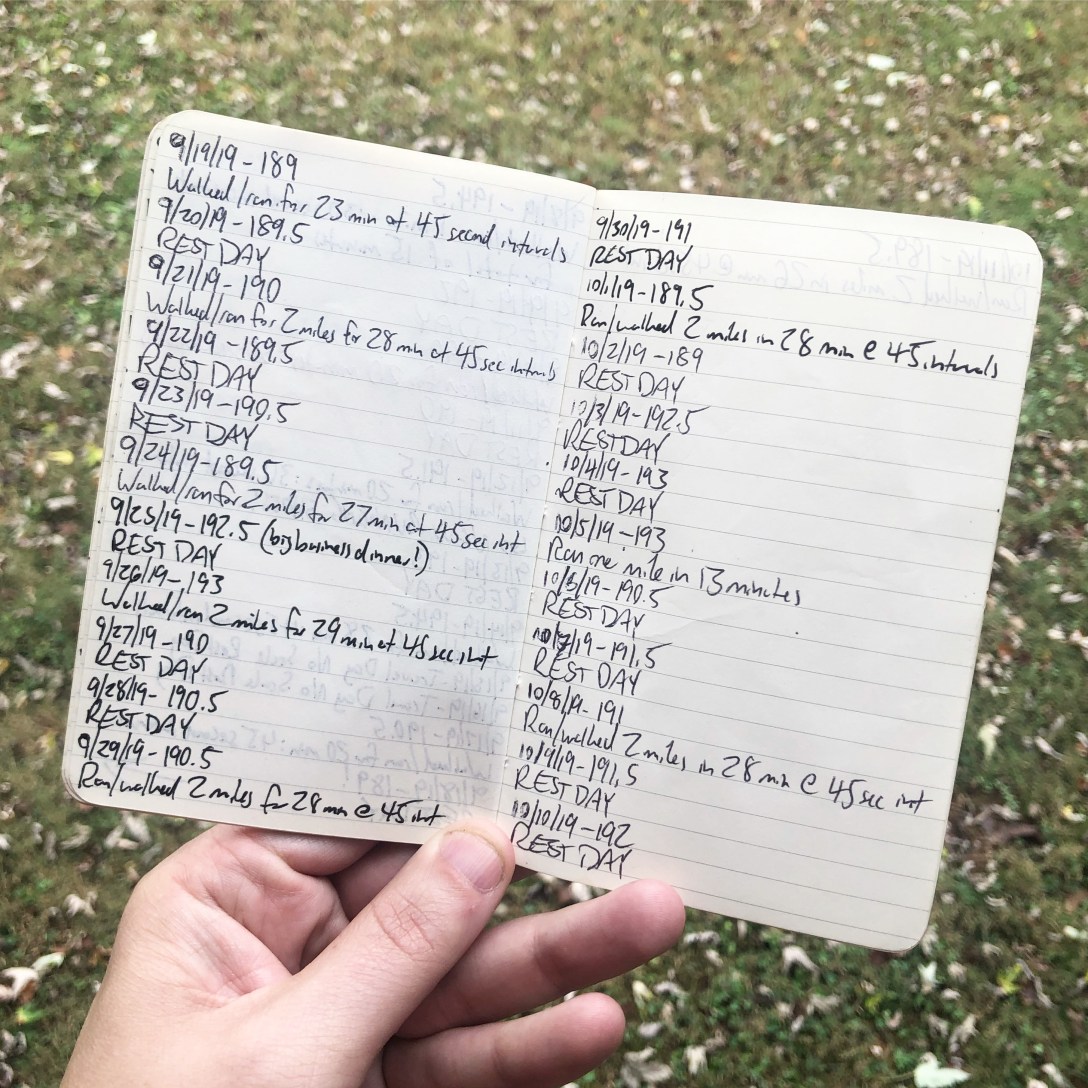 9/19/19 - 189
Walked/ran for 23 min at 45 second intervals
9/20/19 - 189.5
REST DAY
9/21/19 - 190
Walked/ran for 2 miles for 28 min at 45 sec intervals
9/22/19 - 189.5
REST DAY
9/23/19 - 190.5
REST DAY
9/24/19 - 189.5
Walked/ran for 2 miles for 27 min at 45 sec int
9/25/19 - 192.5 (big business dinner!)
REST DAY
9/26/19 - 193
Walked/ran 2 miles for 29 min at 45 sec int
9/27/19 - 190
REST DAY
9/28/19 - 190.5
REST DAY
9/29/19 - 190.5
Ran/walked 2 miles for 28 min @ 45 int
9/30/19 - 191
REST DAY
10/1/19 - 189.5
Ran/walked 2 miles in 28 min @ 45 intervals
10/2/19 - 189
REST DAY
10/3/19 - 192.5
REST DAY
10/4/19 - 193
REST DAY
10/5/19 - 193
Ran one mile in 13 minutes
10/6/19 - 190.5
REST DAY
10/7/19 - 191.5
REST DAY
10/8/19 - 191
Ran/walked 2 miles in 28 min @ 45 sec int
10/9/19 - 191.5
REST DAY
10/10/19 - 192
REST DAY